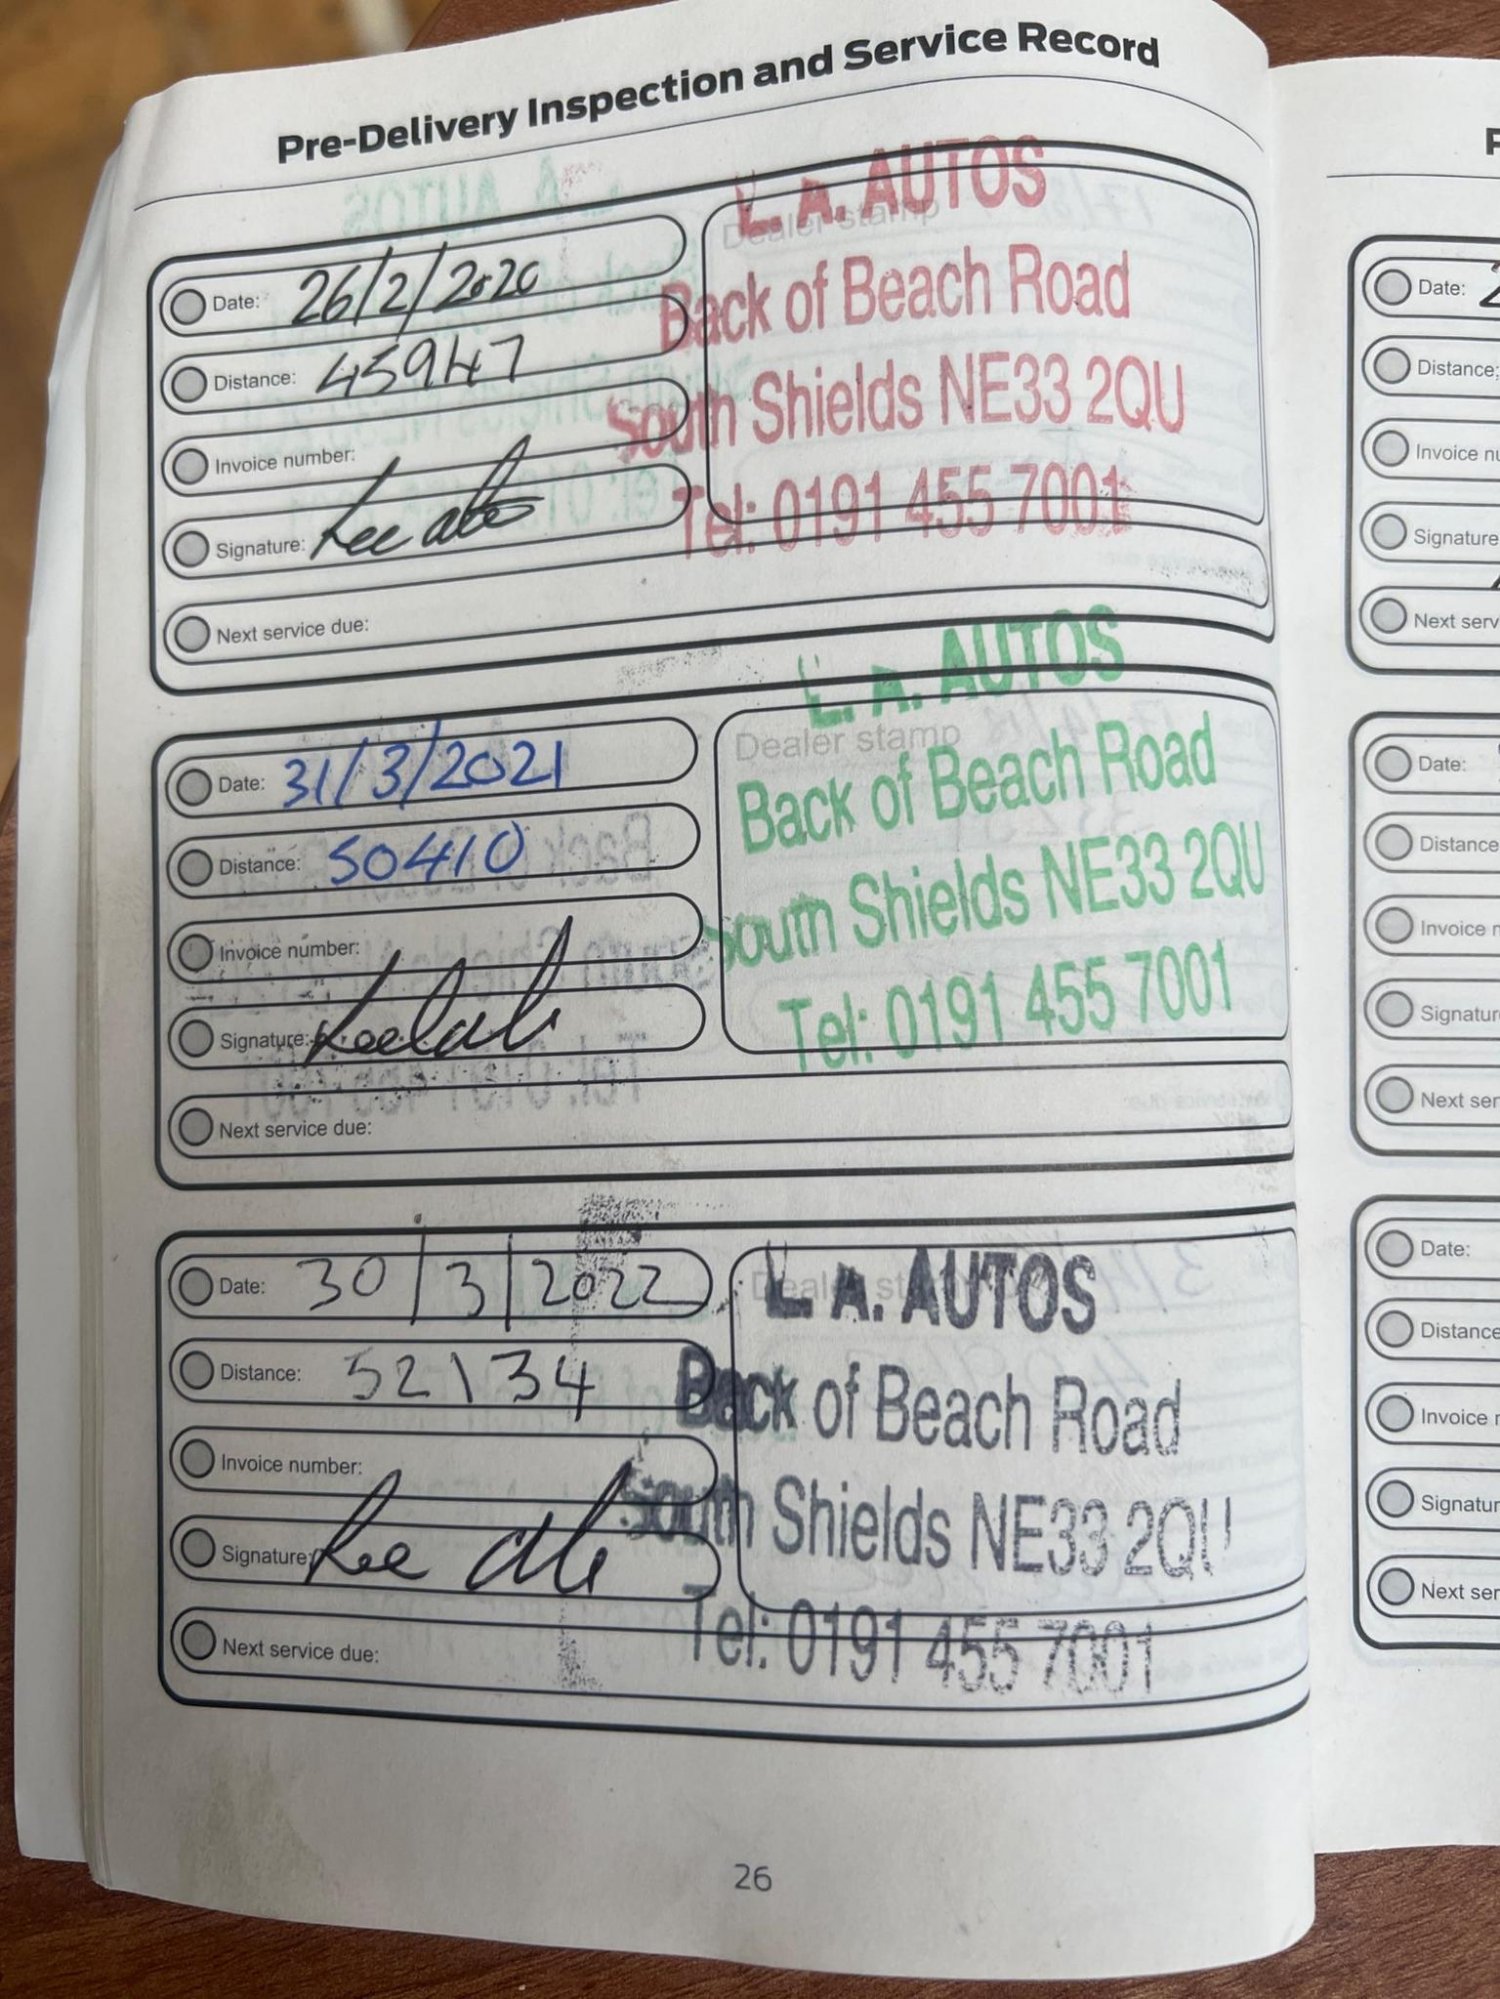 Pre-Delivery Inspection and Service Record
L. A. AUTOS
Dealer stamp
Date: 26/2/2020
Back of Beach Road
Distance: 45947
South Shields NE33 2QU
Invoice number:
Tel: 0191 455 7001
Signature:
Next service due:
L. A. AUTOS
Dealer stamp
Date: 31/3/2021
Back of Beach Road
Distance: 50410
South Shields NE33 2QU
Invoice number:
Tel: 0191 455 7001
Signature:
Next service due:
L. A. AUTOS
Dealer stamp
Date: 30/3/2022
Back of Beach Road
Distance: 52134
South Shields NE33 2QU
Invoice number:
Signature:
Tel: 0191 455 7001
Next service due:
26
Date:
Distance:
Invoice
Signature
Next
Date:
Distance
Invoice
Next
Date:
Distance
Invoice
Next